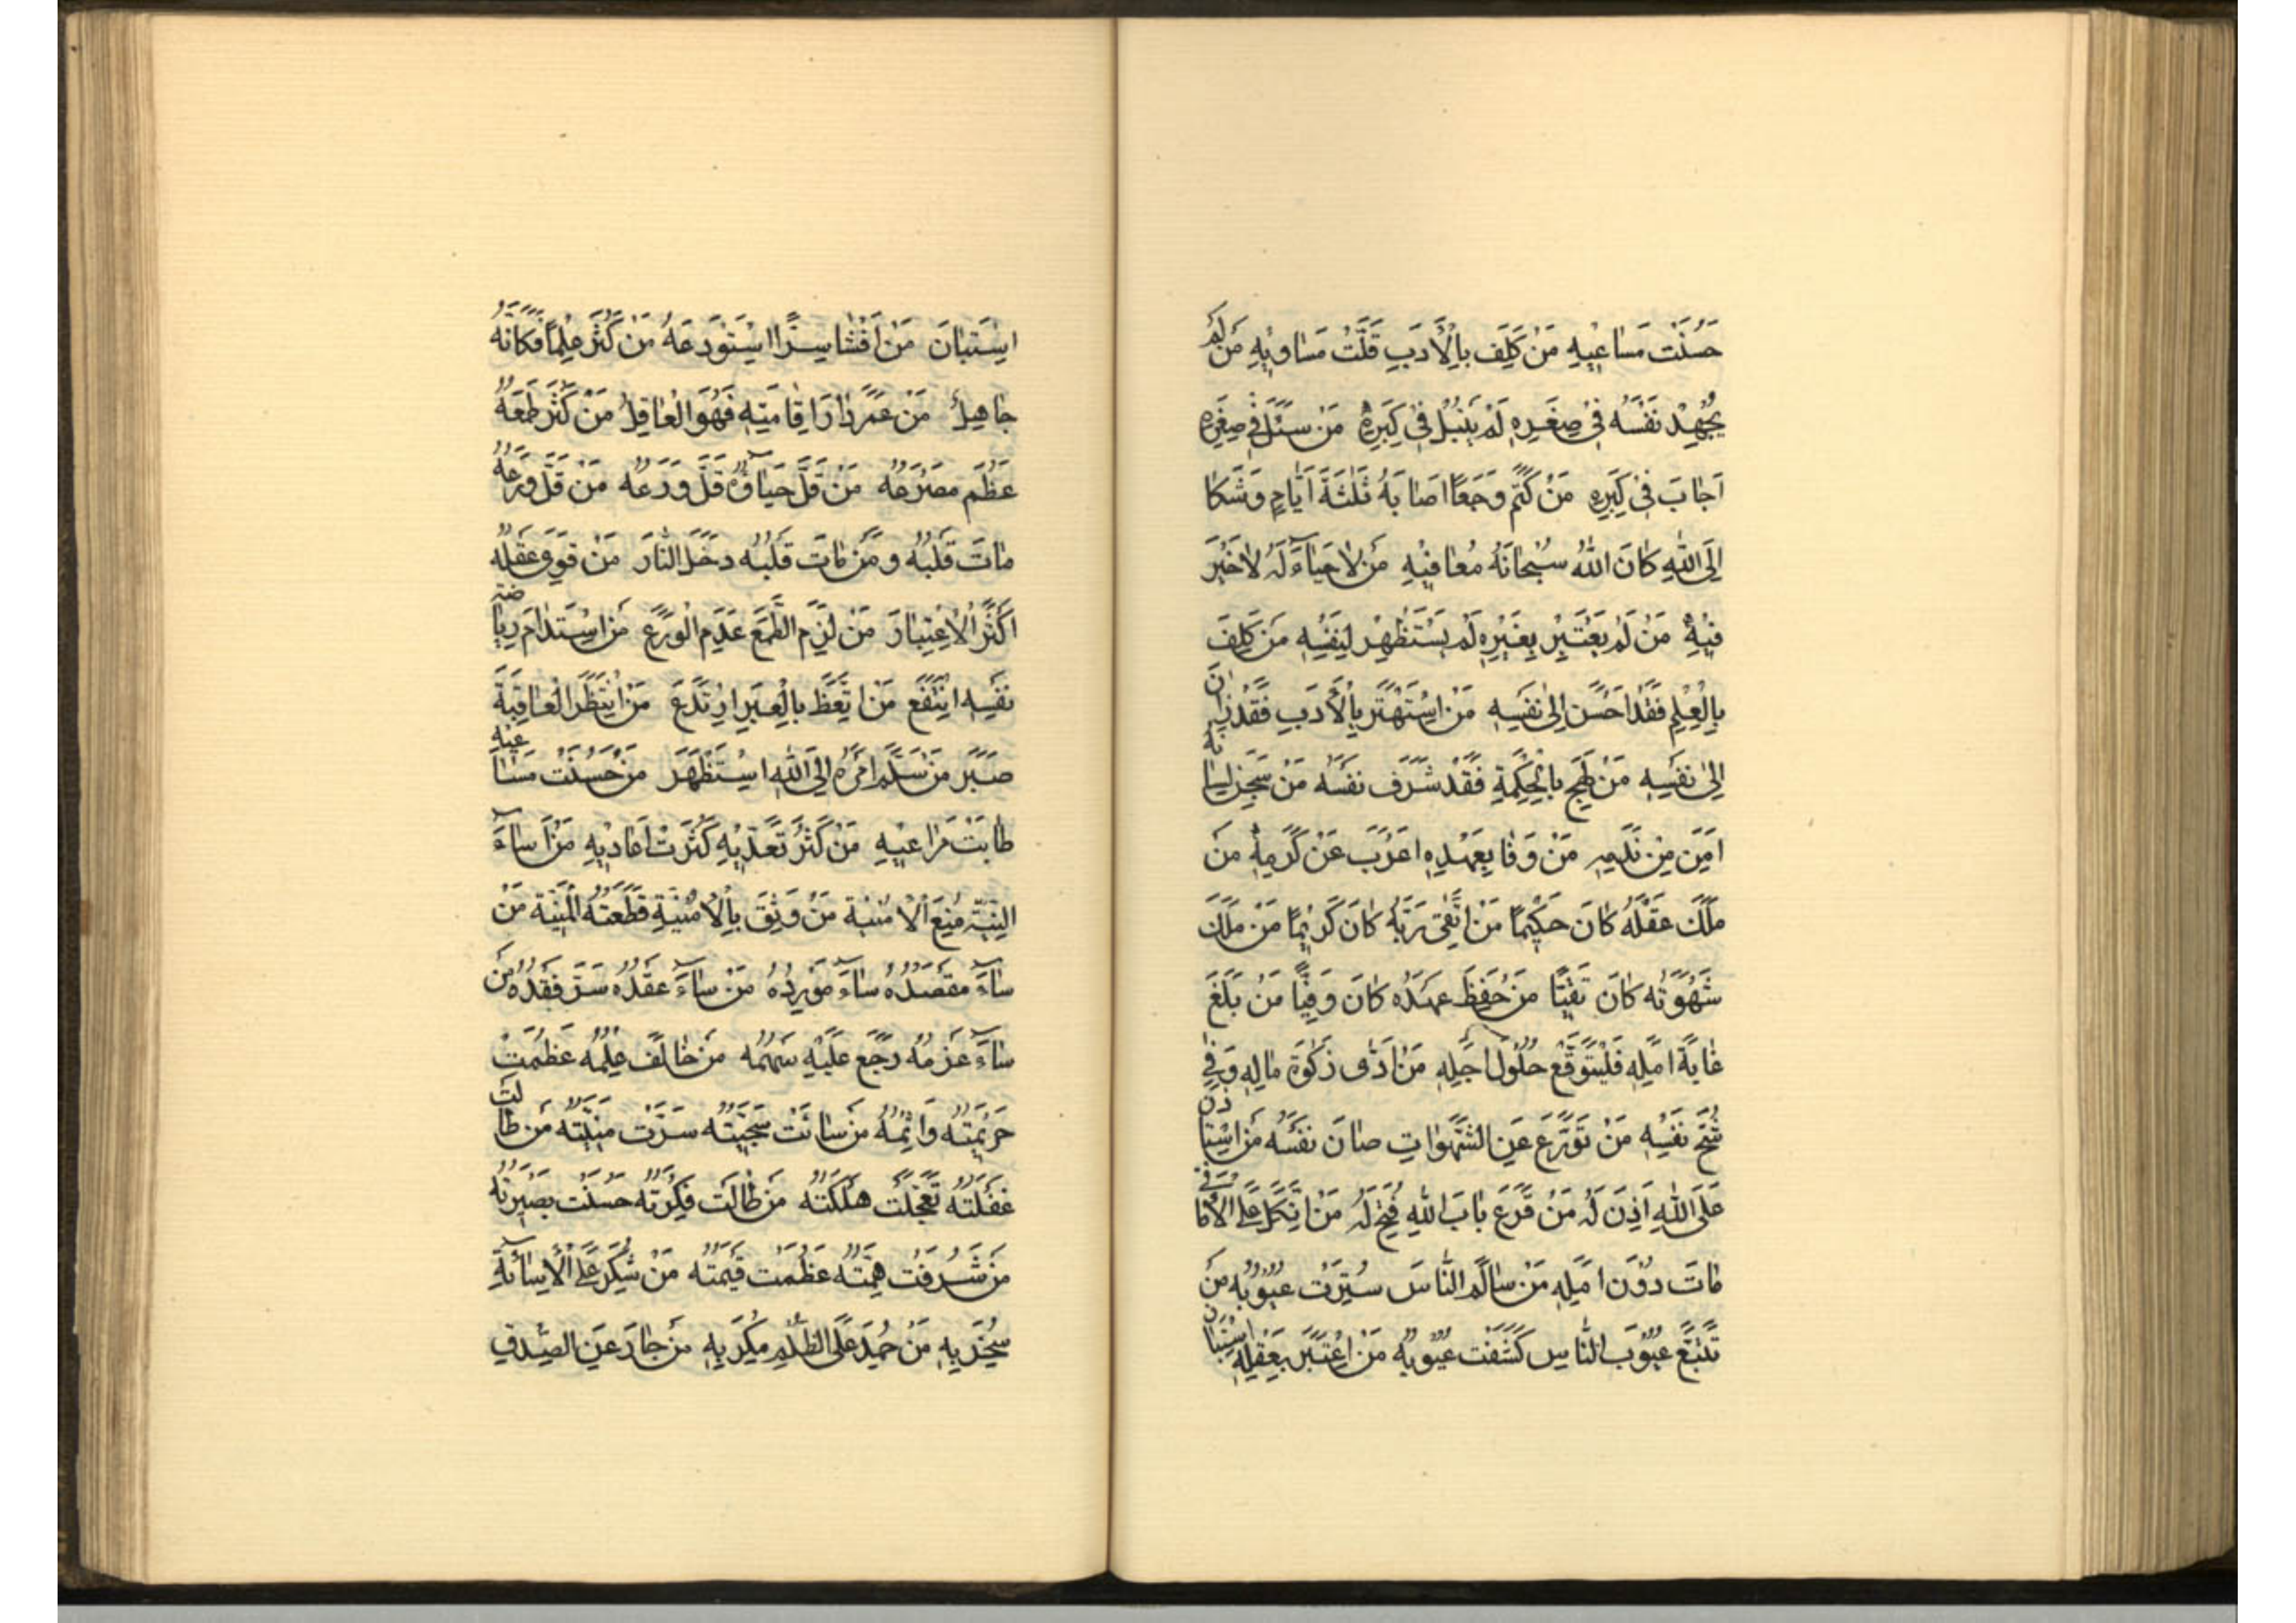 حَسُنَتْ مَسَاعِيهِ مَنْ كَلِفَ بِالْأَدَبِ قَلَّتْ مَسَاوِيهِ مَنْ لَمْ
يُجْهِدْ نَفْسَهُ فِي صِغَرِهِ لَمْ يَنْبُلْ فِي كِبَرِهِ مَنْ سَئَلَ فِي صِغَرِهِ
اَجَابَ فِي كِبَرِهِ مَنْ كَتَمَ وَجَعًا اَصَابَهُ ثَلٰثَةَ اَيَّامٍ وَشَكَا
اِلَى اللهِ كَانَ اللهُ سُبْحَانَهُ مُعَافِيهِ مَنْ لَا حَيَاءَ لَهُ لَا خَيْرَ
فِيهِ مَنْ لَمْ يَعْتَبِرْ بِغَيْرِهِ لَمْ يَسْتَظْهِرْ لِنَفْسِهِ مَنْ كَلِفَ
بِالْعِلْمِ فَقَدْ اَحْسَنَ اِلَى نَفْسِهِ مَنِ اسْتَهْتَرَ بِالْأَدَبِ فَقَدْ زَانَ
اِلَى نَفْسِهِ مَنْ لَهِجَ بِالْحِكْمَةِ فَقَدْ شَرَّفَ نَفْسَهُ مَنْ سَجَنَ لِسَانَهُ
اَمِنَ مِنْ نَدَمِهِ مَنْ وَفَا بِعَهْدِهِ اَعْرَبَ عَنْ كَرَمِهِ مَنْ
مَلَكَ عَقْلَهُ كَانَ حَكِيمًا مَنِ اتَّقَى رَبَّهُ كَانَ كَرِيمًا مَنْ مَلَكَ
شَهْوَتَهُ كَانَ تَقِيًّا مَنْ حَفِظَ عَهْدَهُ كَانَ وَفِيًّا مَنْ بَلَغَ
غَايَةَ اَمَلِهِ فَلْيَتَوَقَّعْ حُلُولَ اَجَلِهِ مَنْ اَدَّى زَكٰوةَ مَالِهِ وُقِيَ
شُحَّ نَفْسِهِ مَنْ تَوَرَّعَ عَنِ الشَّهَوَاتِ صَانَ نَفْسَهُ مَنِ اسْتَأْذَنَ
عَلَى اللهِ اَذِنَ لَهُ مَنْ قَرَعَ بَابَ اللهِ فُتِحَ لَهُ مَنِ اتَّكَلَ عَلَى الْأَمَانِي
مَاتَ دُونَ اَمَلِهِ مَنْ سَالَمَ النَّاسَ سُتِرَتْ عُيُوبُهُ مَنْ
تَتَبَّعَ عُيُوبَ النَّاسِ كُشِفَتْ عُيُوبُهُ مَنِ اعْتَبَرَ بِعَقْلِهِ اسْتَبَانَ
اِسْتَبَانَ مَنْ اَفْشَا سِرًّا اسْتَوْدَعَهُ مَنْ كَثُرَ فَكَانَهُ
جَاهِلٌ مَنْ عَمَّرَ دَارَ اِقَامَتِهِ فَهُوَ الْعَاقِلُ مَنْ كَثُرَ طَمَعُهُ
عَظُمَ مَصْرَعُهُ مَنْ قَلَّ حَيَاؤُهُ قَلَّ وَرَعُهُ مَنْ قَلَّ وَرَعُهُ
مَاتَ قَلْبُهُ وَمَنْ مَاتَ قَلْبُهُ دَخَلَ النَّارَ مَنْ قَوِيَ عَقْلُهُ
اَكْثَرَ الْاِعْتِبَارَ مَنْ لَزِمَ الطَّمَعَ عَدِمَ الْوَرَعَ مَنِ اسْتَدَامَ رِيَاضَةَ
نَفْسِهِ انْتَفَعَ مَنِ اتَّعَظَ بِالْعِبَرِ ارْتَدَعَ مَنِ انْتَظَرَ الْعَاقِبَةَ
صَبَرَ مَنْ سَلَّمَ اَمْرَهُ اِلَى اللهِ اسْتَظْهَرَ مَنْ حَسُنَتْ مَسَاعِيهِ
طَابَتْ مَرَاعِيهِ مَنْ كَثُرَ تَعَدِّيهِ كَثُرَتْ اَعَادِيهِ مَنْ اَسَاءَ
النِّيَّةَ مُنِعَ الْأُمْنِيَّةَ مَنْ وَثِقَ بِالْأُمْنِيَةِ قَطَعَتْهُ الْمَنِيَّةُ مَنْ
سَاءَ مَقْصَدُهُ سَاءَ مَوْرِدُهُ مَنْ سَاءَ عَقْدُهُ سَرَّ فَقْدُهُ مَنْ
سَاءَ عَزْمُهُ رَجَعَ عَلَيْهِ سَهْمُهُ مَنْ خَالَفَ عِلْمَهُ عَظُمَتْ
جَرِيمَتُهُ وَاِثْمُهُ مَنْ سَائَتْ سَجِيَّتُهُ سَرَّتْ مَنِيَّتُهُ مَنْ طَالَتْ
غَفْلَتُهُ تَعَجَّلَتْ هَلَكَتُهُ مَنْ طَالَتْ فِكْرَتُهُ حَسُنَتْ بَصِيرَتُهُ
مَنْ شَرُفَتْ هِمَّتُهُ عَظُمَتْ قِيمَتُهُ مَنْ شُكِرَ عَلَى الْاِسَائَةِ
سُخِرَ بِهِ مَنْ حُمِدَ عَلَى الظُّلْمِ مُكِرَ بِهِ مَنْ جَارَ عَنِ الصِّدْقِ